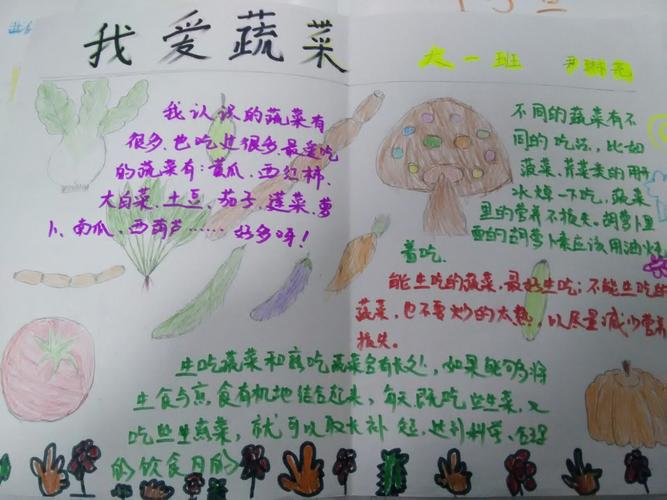 我爱蔬菜
大一班
我认识的蔬菜有
很多,也吃过很多最爱吃
的蔬菜有:黄瓜、西红柿、
大白菜、土豆、茄子、菠菜、萝
卜、南瓜、西葫芦……好多呀!
不同的蔬菜有不
同的吃法,比如
菠菜、芹菜类的用
水焯一下吃,蔬菜
里的营养不损失。胡萝卜里
面的胡萝卜素应该用油炒
着吃.
能生吃的蔬菜,最好生吃;不能生吃的
蔬菜,也不要炒的太熟,以尽量减少营养
损失。
生吃蔬菜和熟吃蔬菜各有长处,如果能够将
生食与熟食有机地结合起来,每天既吃些生菜,又
吃些生煮菜,就可以取长补短,达到科学、合理
的饮食目的